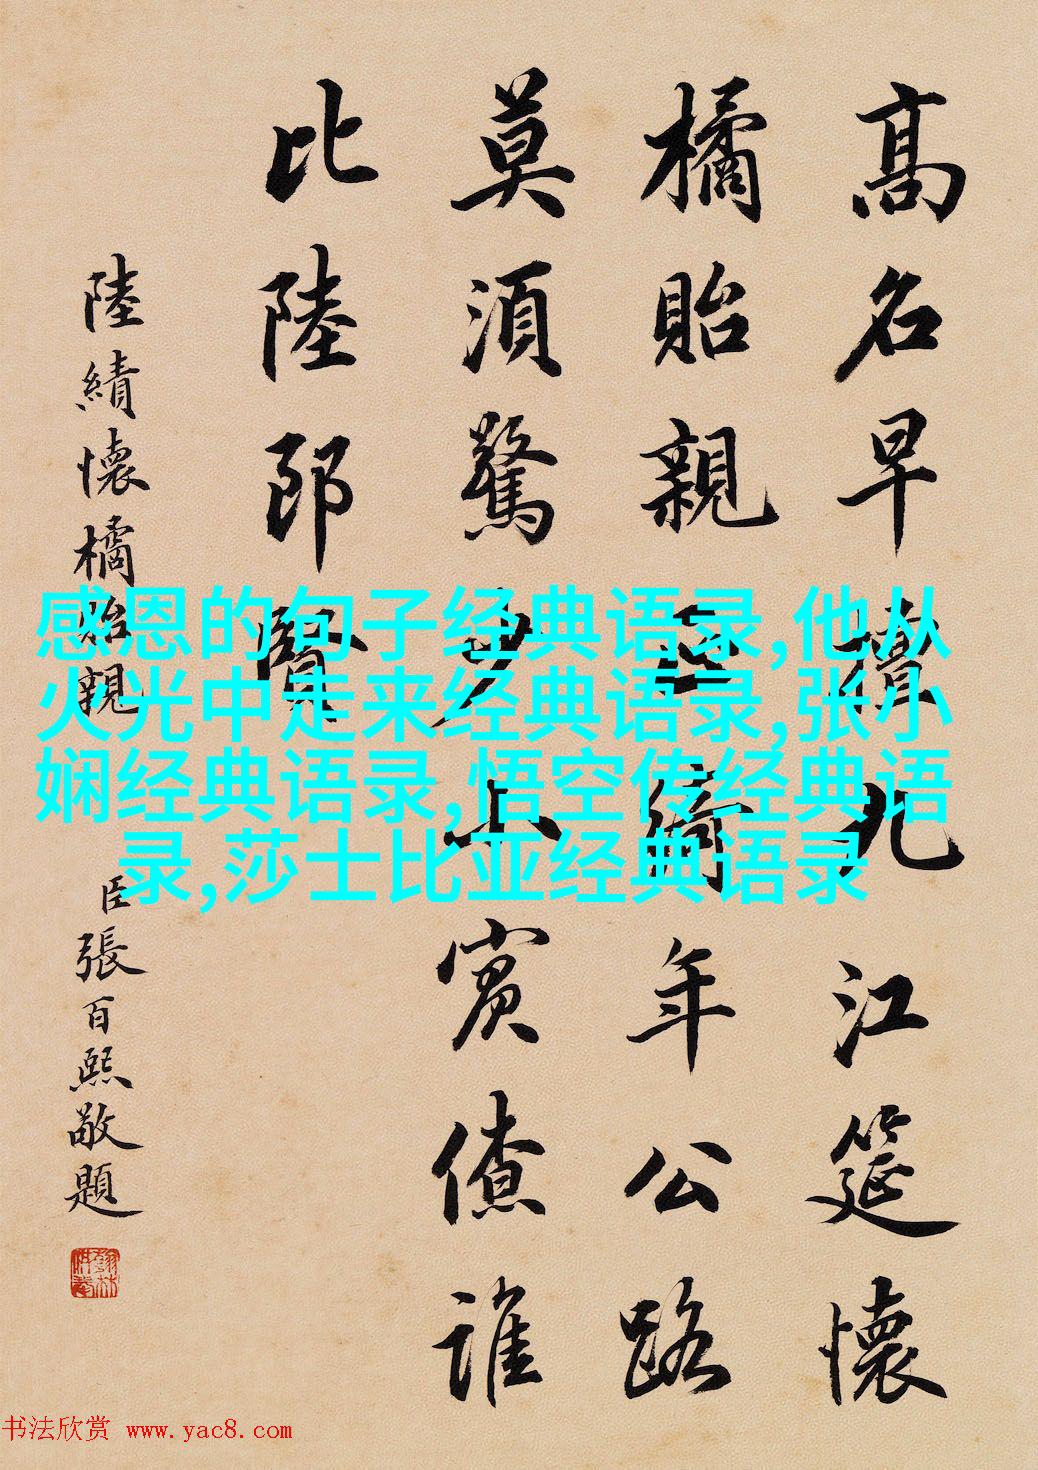 高名早擅九江筵懷
橘貽親正綺年公路
莫須驚少小賓僚誰
比陸郎賢
陸績懷橘貽親
臣張百熙敬題
感恩的句子经典语录,他从
火光中走来经典语录,张小
娴经典语录,悟空传经典语
录,莎士比亚经典语录
书法欣赏 www.yac8.com